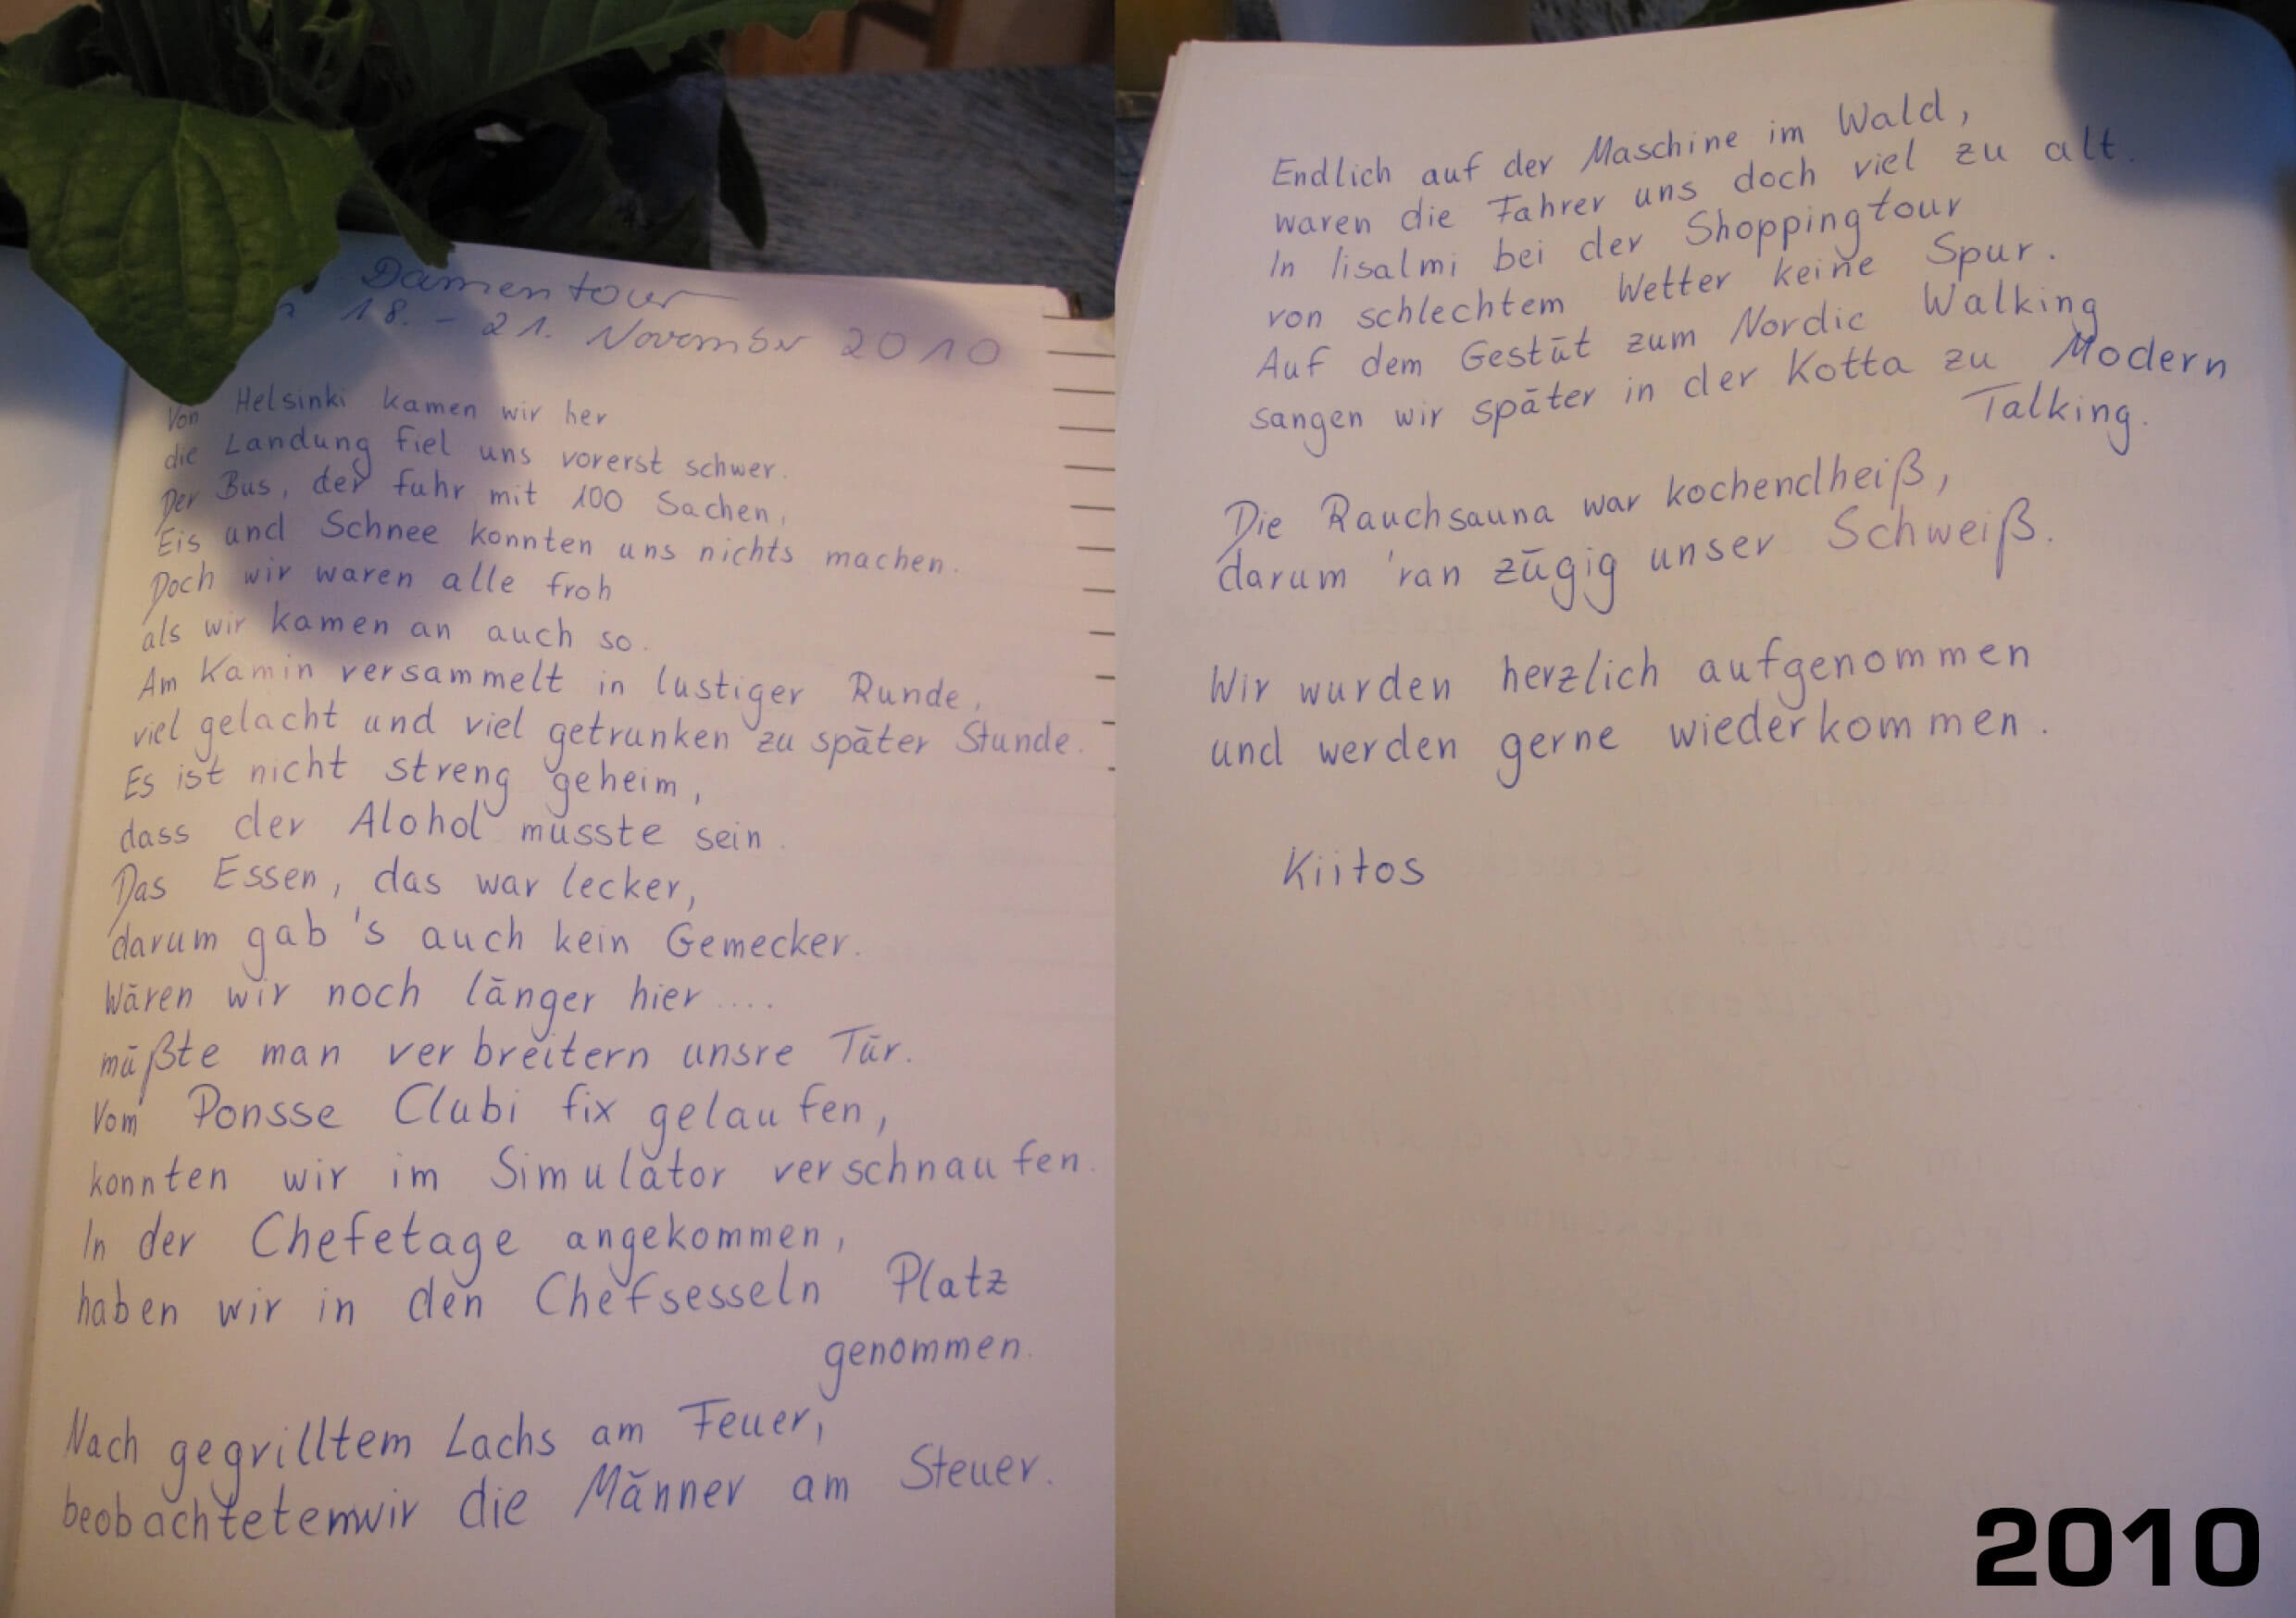 Damentour
18. - 21. November 2010
Von Helsinki kamen wir her
die Landung fiel uns vorerst schwer.
Der Bus, der fuhr mit 100 Sachen,
Eis und Schnee konnten uns nichts machen.
Doch wir waren alle froh
als wir kamen an auch so.
Am Kamin versammelt in lustiger Runde,
viel gelacht und viel getrunken zu später Stunde.
Es ist nicht streng geheim,
dass der Alohol musste sein.
Das Essen, das war lecker,
darum gab's auch kein Gemecker.
Wären wir noch länger hier ....
müßte man verbreitern unsre Tür.
Vom Ponsse Clubi fix gelaufen,
konnten wir im Simulator verschnaufen.
In der Chefetage angekommen,
haben wir in den Chefsesseln Platz
genommen.
Nach gegrilltem Lachs am Feuer,
beobachteten wir die Männer am Steuer.
Endlich auf der Maschine im Wald,
waren die Fahrer uns doch viel zu alt.
In Iisalmi bei der Shoppingtour
von schlechtem Wetter keine Spur.
Auf dem Gestüt zum Nordic Walking
sangen wir später in der Kotta zu Modern
Talking.
Die Rauchsauna war kochendheiß,
darum 'ran zügig unser Schweiß.
Wir wurden herzlich aufgenommen
und werden gerne wiederkommen.
Kiitos
2010